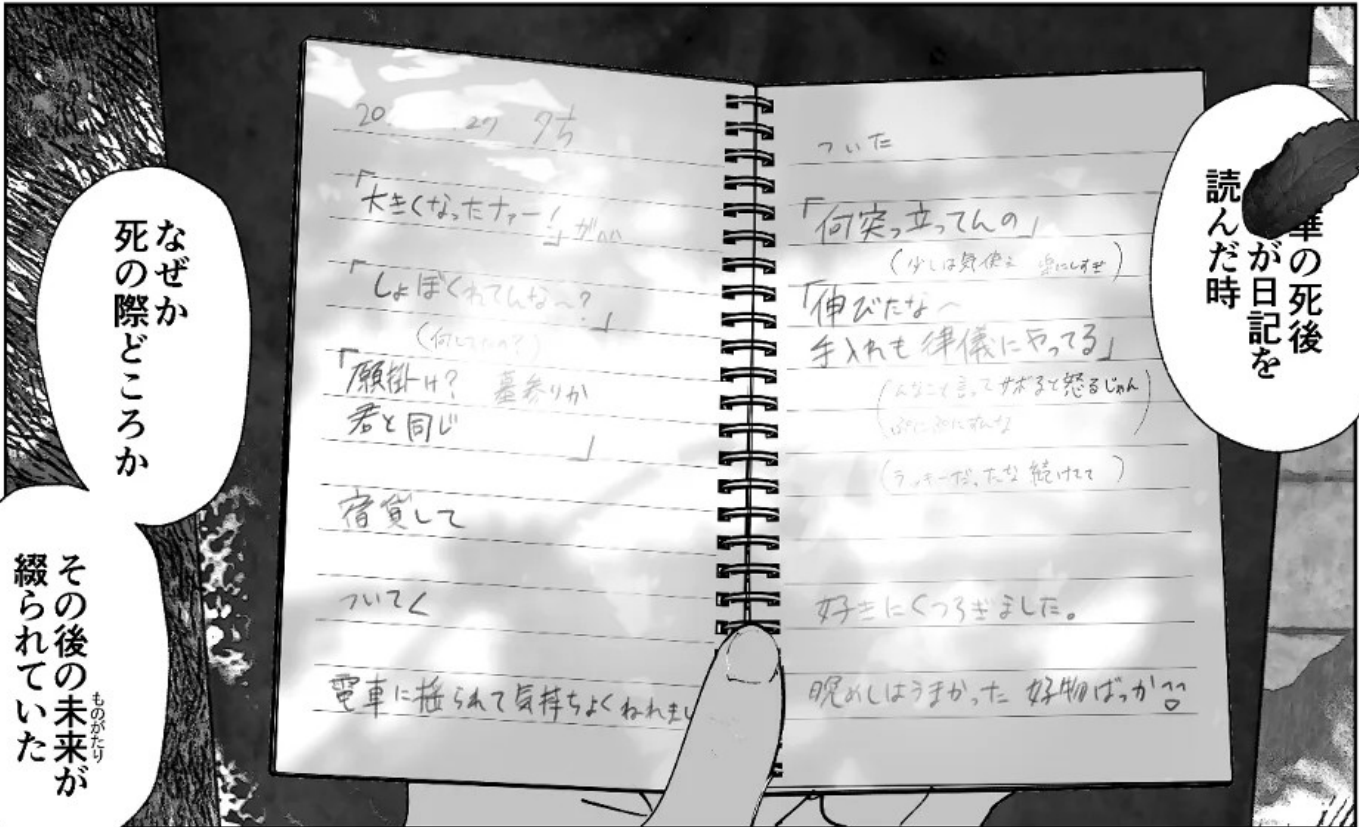 華の死後
が日記を
読んだ時
なぜか
死の際どころか
その後の未来が
ものがたり
綴られていた
20 .27 夕方
「大きくなったナァー!」が
「しょぼくれてんな〜?」
(何してんの?)
「願掛け? 墓参りか
君と同じ 」
宿貸して
ついてく
電車に揺られて気持ちよくねれまし
ついた
「何突っ立ってんの」
(少しは気使え 楽にしすぎ)
「伸びたな〜
手入れも律儀にやってる」
(んなこと言ってサボると怒るじゃん
ぷにぷにすんな)
(ラッキーだったな 続けてて)
好きにくつろぎました。
晩めしはうまかった 好物ばっか